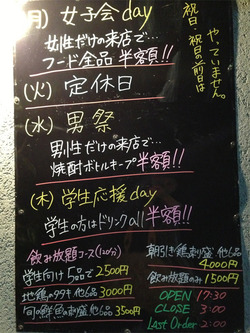 月) 女子会day
女性だけの来店で…
フード全品 半額!!
(火) 定休日
(水) 男祭
男性だけの来店で…
焼酎ボトルキープ半額!!
(木) 学生応援day
学生の方はドリンクall半額!!
祝日・祝日前日は
やっていません。
飲み放題コース(120分)
学生向け 5品で2500円
地鶏のタタキ 他6品 3000円
旬の鮮魚の刺盛 他6品 3500円
朝引き鶏刺盛 他6品
4000円
飲み放題のみ 1500円
OPEN 17:30
CLOSE 3:00
Last Order 2:00